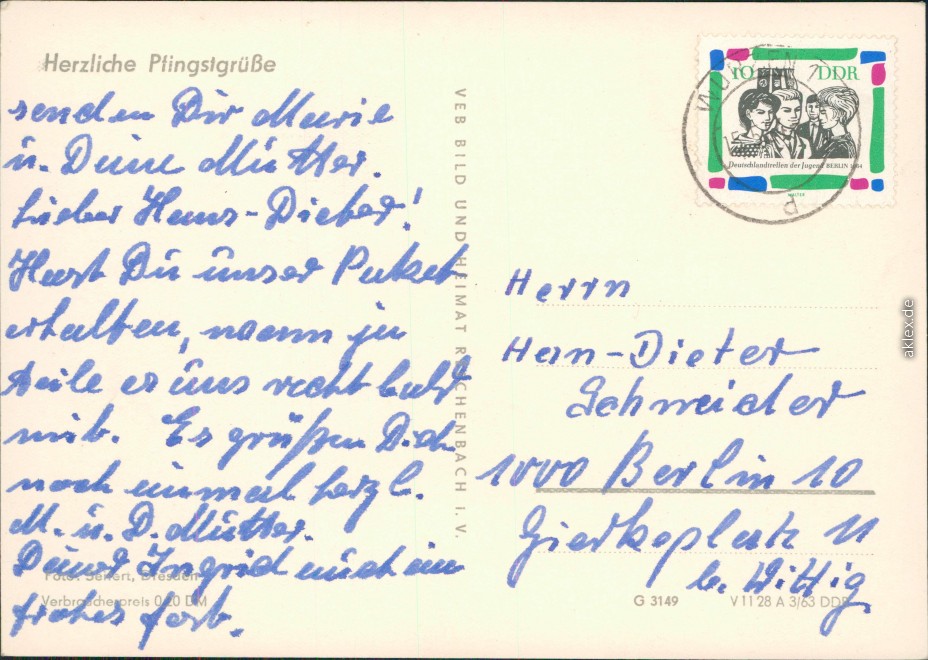 Herzliche Pfingstgrüße
senden Dir Marie
u. Deine Mutter.
Lieber Hans-Dieter!
Hast Du unser Paket
erhalten, wenn ja
teile es uns recht bald
mit. Es grüßen Dich
noch einmal herzl.
M. u. D. Mutter.
Deine Ingrid auch ein
frohes fest.
Foto: Seifert, Dresden
Verbraucherpreis 0,20 DM
VEB BILD UND HEIMAT REICHENBACH I. V.
10 DDR
Deutschlandtreffen der Jugend BERLIN 1964
Herrn
Han-Dieter
Schneider
1000 Berlin 10
Gierkeplatz 11
b. Wittig
G 3149 V 11 28 A 3/63 DDR
aklex.de